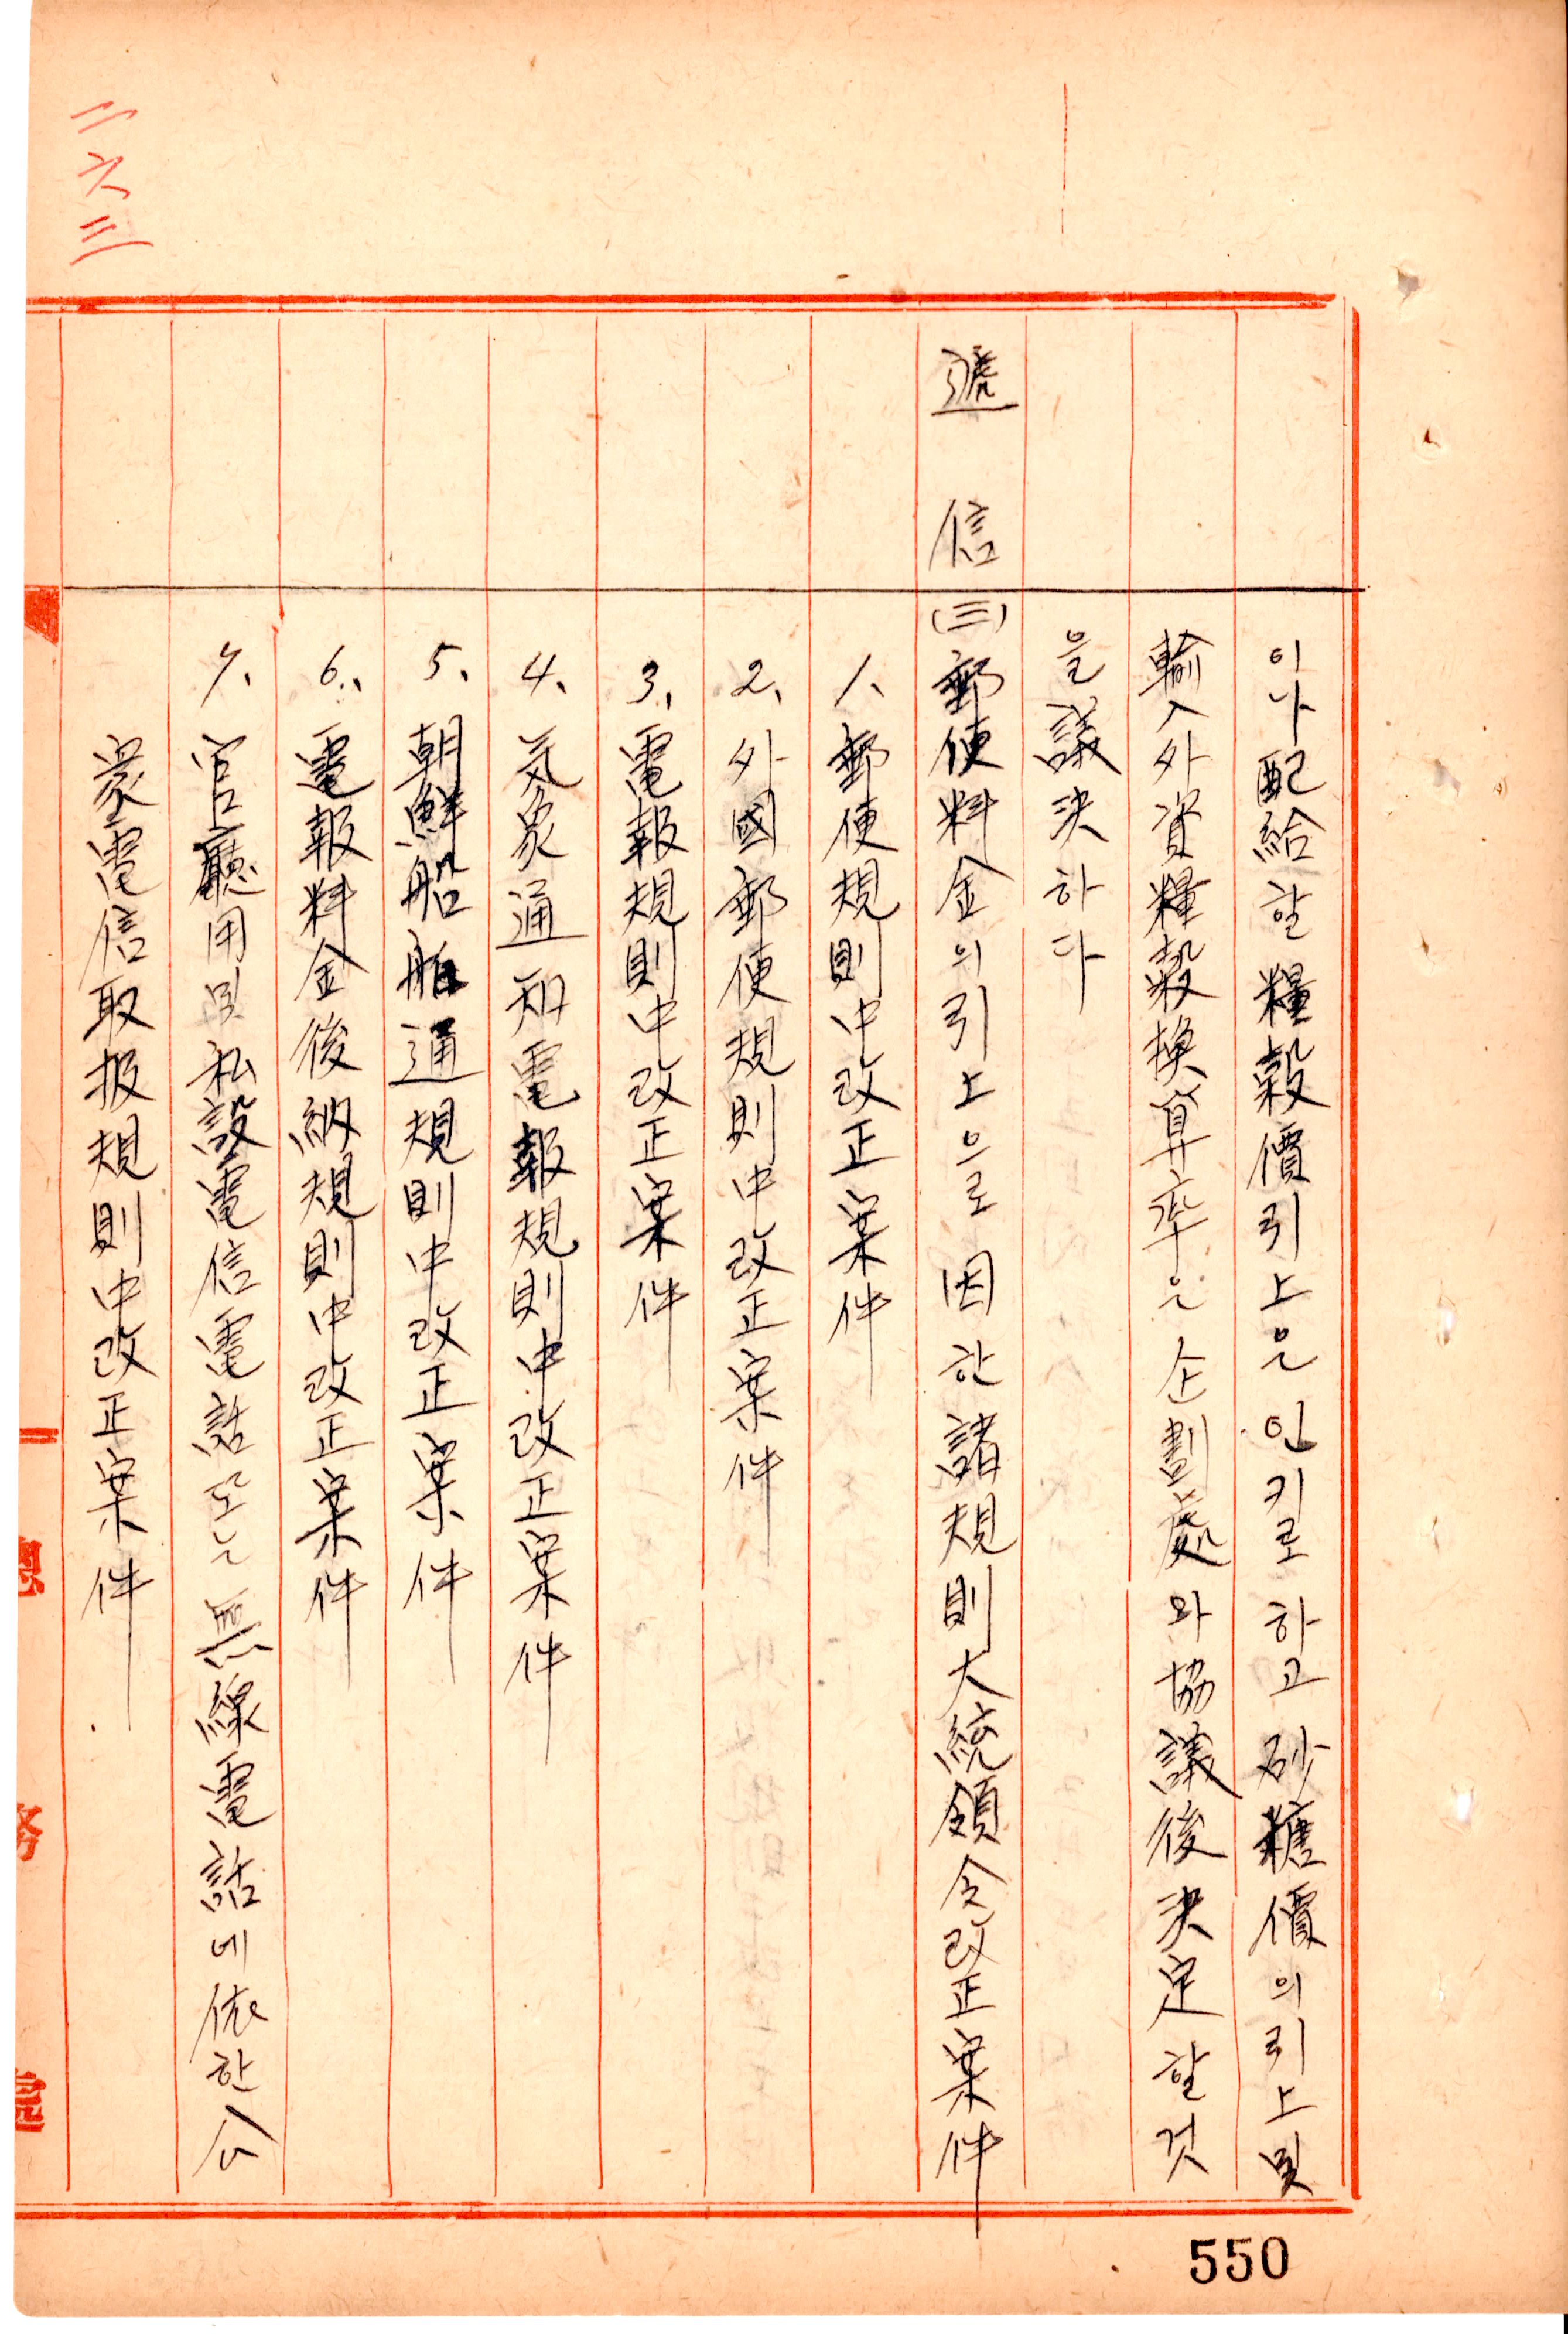 이나配給할糧穀價引上은인키로하고砂糖價의引上및
輸入外資糧穀換算率은企劃處와協議後決定할것
을議決하다
遞信 (三)郵便料金의引上으로因한諸規則大統領令改正案件
1、郵便規則中改正案件
2、外國郵便規則中改正案件
3、電報規則中改正案件
4、気象通知電報規則中改正案件
5、朝鮮船舶通規則中改正案件
6、電報料金後納規則中改正案件
7、官廳用및私設電信電話又는無線電話에依한公
衆電信取扱規則中改正案件
二六三
總務處
550